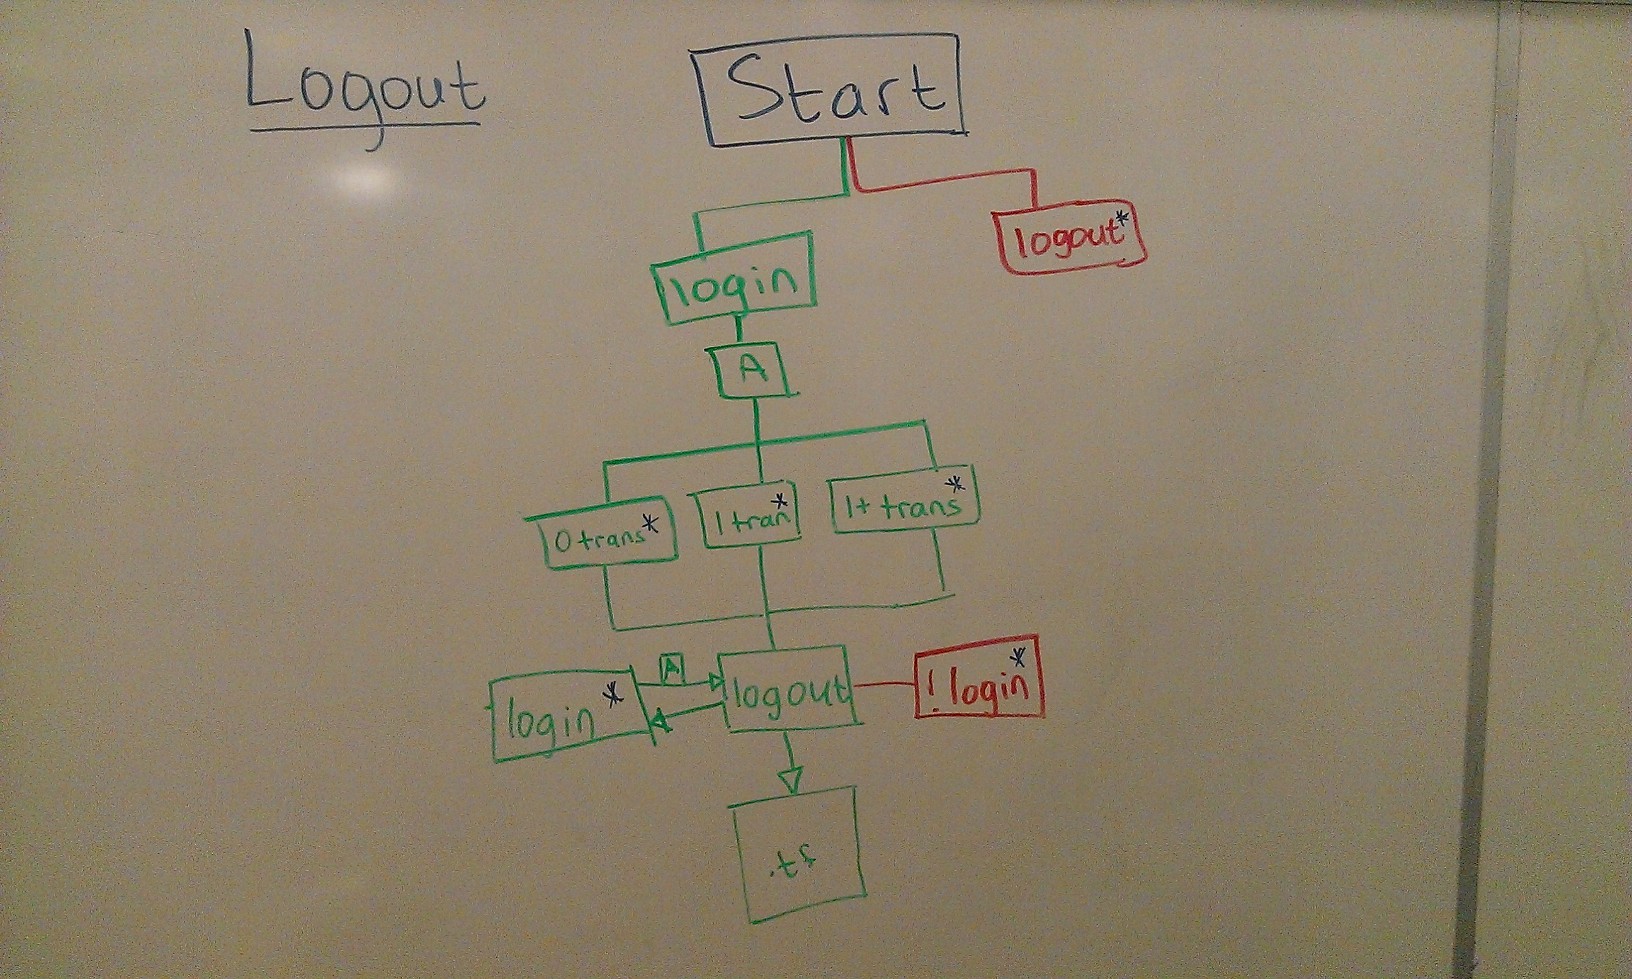 Logout
Start
logout*
login
A
0 trans*
1 tran*
1+ trans*
A
login*
logout
! login*
.tf